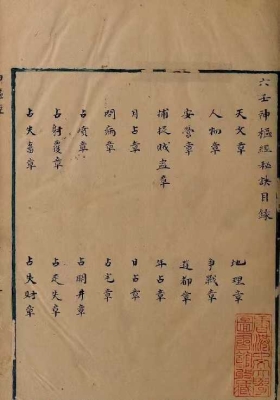 六壬神樞經秘訣目錄
天文章 地理章
人物章 爭戰章
安營章 遊都章
捕捉賊盜章 年占章
月占章 日占章
問病章 占宅章
占食章 占開井章
占射覆章 占走失章
占失畜章 占失財章